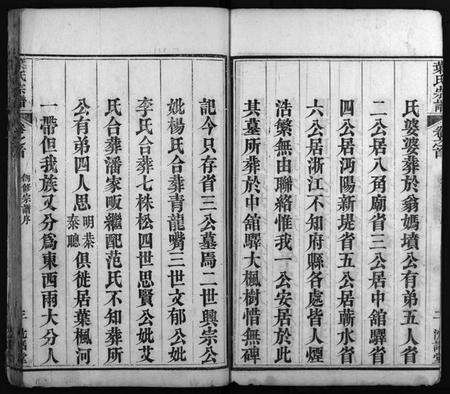 葉氏宗譜
卷之首
氏婆婆葬於翁媽墳公有弟五人省
二公居八角廟省三公居中舘省
四公居沔陽新堤省五公居蘄水省
六公居浙江不知府縣各處皆人煙
浩繁無由聯絡惟我一公安居於此
其墓所葬於中舘驛大楓樹惜無碑
記今只存省三公墓焉二世興宗公
妣楊氏合葬青龍嘴三世文郁公妣
李氏合葬七株松四世思賢公妣艾
氏合葬潘家畈繼配范氏不知葬所
公有弟四人思明恭泰聰俱徙居葉楓河
一帶但我族又分爲東西兩大分人
氏宗譜
卷之首
序
三